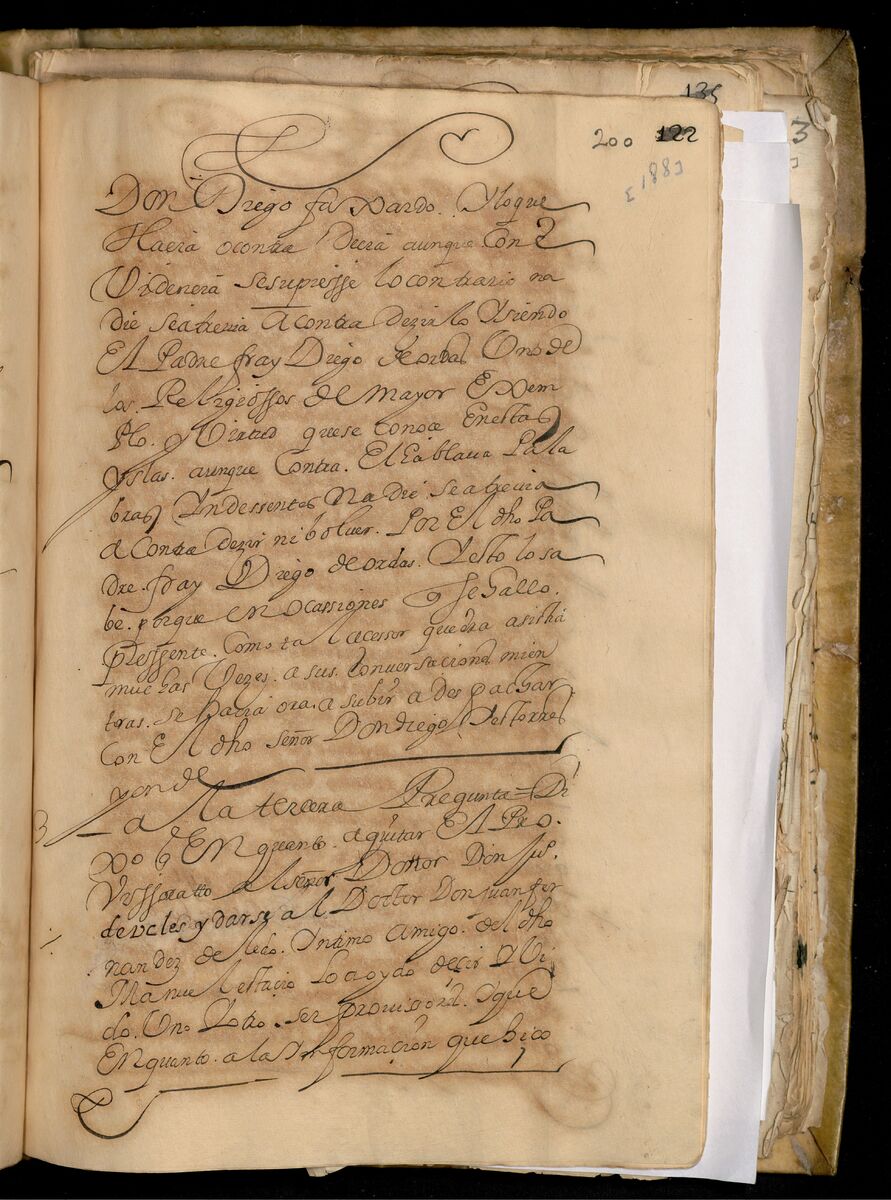 135
200 122
3
1883
Don Diego faxardo. Yloque
Hacia ocontra Decia aunque Con
Videncia sesupiesse lo contrario na
die seatrevia Acontra dezirlo Ysiendo
El Padre fray Diego de ordas Uno de
los. Religiossos de Mayor Exem
plo. y Virtud quese conoce Enestas
Yslas. aunque Contra. El hablava Pala
bras Yndessentes Nadie. seatrevia
a Contra dezir ni bolver. Por El dho Pa
dre. fray Diego de ordas. Yesto lo sa
be. porque en ocassiones se hallo.
pressente. Como tal acessor que
muchas Vezes. a sus. conversaciones mien
tras. se hacia ora. a subir a despachar
Con El dho señor Don Diego
yonde
3 – a la tercera Pregunta = Di
xo q En quanto. a quitar El Pro.
Vissoratto al señor Dottor Don Ju°.
deucles y darse al Dottor Don Juan fer
nandez de ledo. Yntimo Amigo. del dho
Manuel estacio Lo a oydo decir Y Vi
do. Uno Yotro. ser provisores. Yque
Enquanto. a las Ynformacion que hico